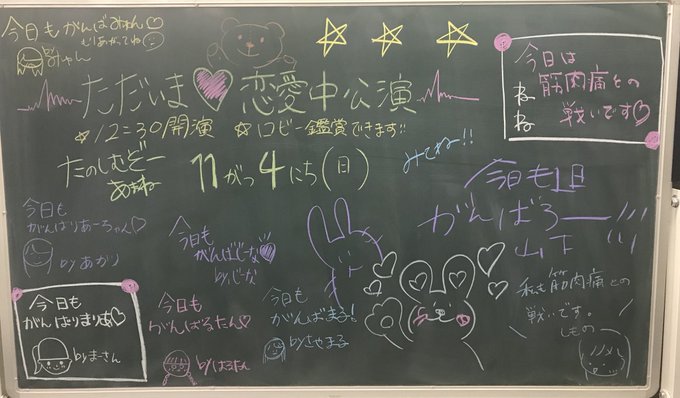 今日もがんばみゃん♡
むりあがってね
by みゃん
ただいま♡恋愛中公演
☆12=30開演 ☆ロビー鑑賞できます!!
たのしむぞー
11がつ4にち(日)
みてねー!!
今日は
筋肉痛との
戦いです♡
ねね
今日も1日
がんばろー!!!
山下
今日も
がんばりあーちゃん♡
by あかり
今日も
がんばじーな♡
by じーな
今日も
がんばりまりあ♡
by まーさん
今日も
がんばるたん♡
by はるたん
今日も
がんばま子!
by さやまる
私も筋肉痛との
戦いです。
しもの